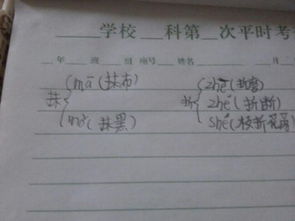 学校 科第 次平时考
年 班 组 座号 姓名 月
抹 mā(抹布) mǒ(抹黑)
折 zhē(折磨) zhé(折断) shé(枝折花落)